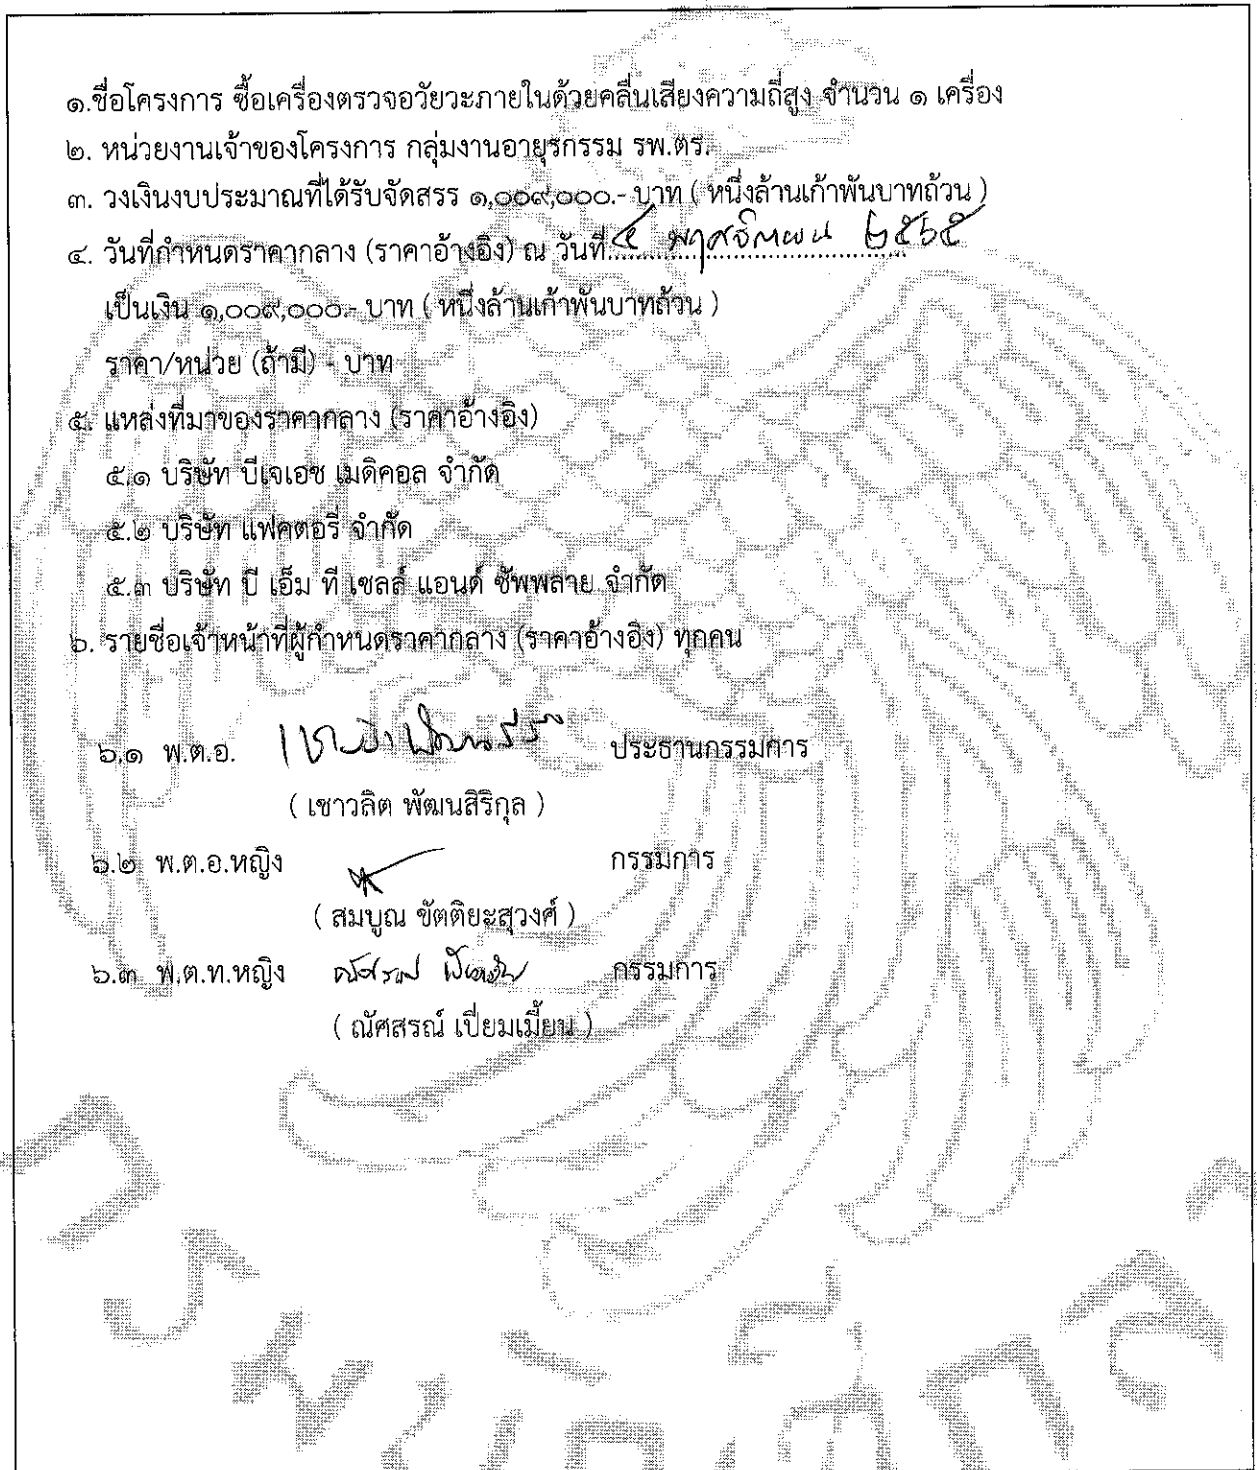 ๑.ชื่อโครงการ ซื้อเครื่องตรวจอวัยวะภายในด้วยคลื่นเสียงความถี่สูง จำนวน ๑ เครื่อง
๒. หน่วยงานเจ้าของโครงการ กลุ่มงานอายุรกรรม รพ.ตร.
๓. วงเงินงบประมาณที่ได้รับจัดสรร ๑,๐๐๙,๐๐๐.- บาท ( หนึ่งล้านเก้าพันบาทถ้วน )
๔. วันที่กำหนดราคากลาง (ราคาอ้างอิง) ณ วันที่ พฤศจิกายน ๒๕๖๕
เป็นเงิน ๑,๐๐๙,๐๐๐.- บาท ( หนึ่งล้านเก้าพันบาทถ้วน )
ราคา/หน่วย (ถ้ามี) - บาท
๕. แหล่งที่มาของราคากลาง (ราคาอ้างอิง)
๕.๑ บริษัท บีเจเอช เมดิคอล จำกัด
๕.๒ บริษัท แฟคตอรี่ จำกัด
๕.๓ บริษัท บี เอ็ม ที เซลส์ แอนด์ ซัพพลาย จำกัด
๖. รายชื่อเจ้าหน้าที่ผู้กำหนดราคากลาง (ราคาอ้างอิง) ทุกคน
๖.๑ พ.ต.อ. ประธานกรรมการ
( เชาวลิต พัฒนสิริกุล )
๖.๒ พ.ต.อ.หญิง กรรมการ
( สมบูณ ขัตติยะสุวงศ์ )
๖.๓ พ.ต.ท.หญิง กรรมการ
( ณัศสรณ์ เปี่ยมเมี้ยน )